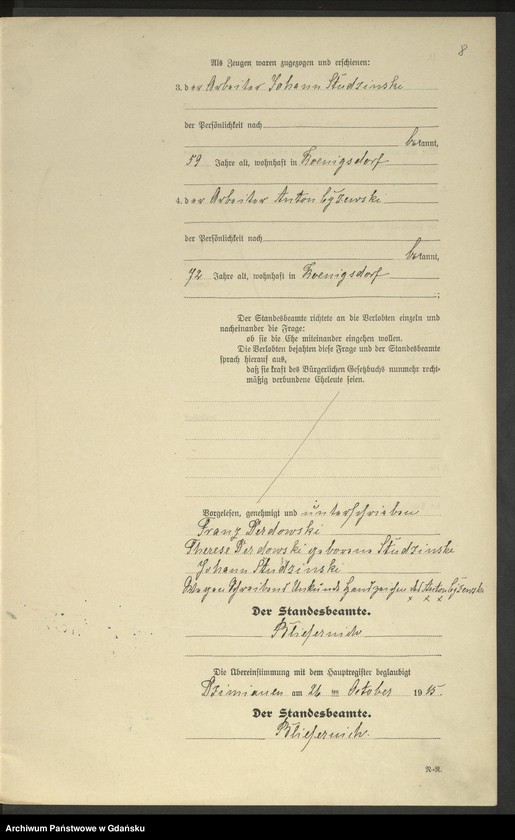 8
Als Zeugen waren zugezogen und erschienen:
3. der Arbeiter Johann Studzinski
der Persönlichkeit nach
bekannt,
59 Jahre alt, wohnhaft in Koenigsdorf
4. der Arbeiter Anton Cyżewski
der Persönlichkeit nach
bekannt,
72 Jahre alt, wohnhaft in Koenigsdorf
;
Der Standesbeamte richtete an die Verlobten einzeln und
nacheinander die Frage:
ob sie die Ehe miteinander eingehen wollen.
Die Verlobten bejahten diese Frage und der Standesbeamte
sprach hierauf aus,
daß sie kraft des Bürgerlichen Gesetzbuchs nunmehr recht-
mäßig verbundene Eheleute seien.
Vorgelesen, genehmigt und unterschrieben
Franz Derdowski
Therese Derdowski geborene Studzinski
Johann Studzinski
Wegen Schreibens Unkunde Handzeichen des Anton Cyżewski
x x x
Der Standesbeamte.
Kliefernich
Die Übereinstimmung mit dem Hauptregister beglaubigt
Dzimianen am 26 ten October 1915.
Der Standesbeamte.
Kliefernich.
R-R.
Archiwum Państwowe w Gdańsku